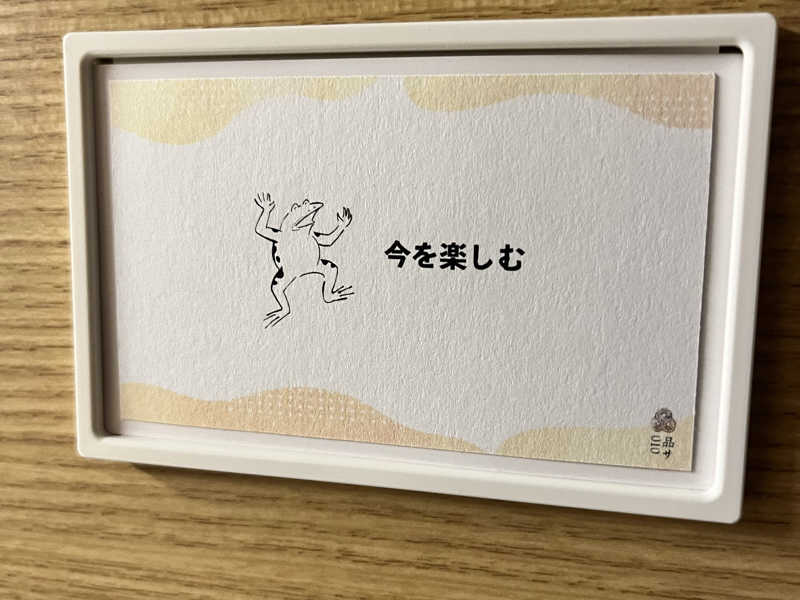 今を楽しむ
品サ
010